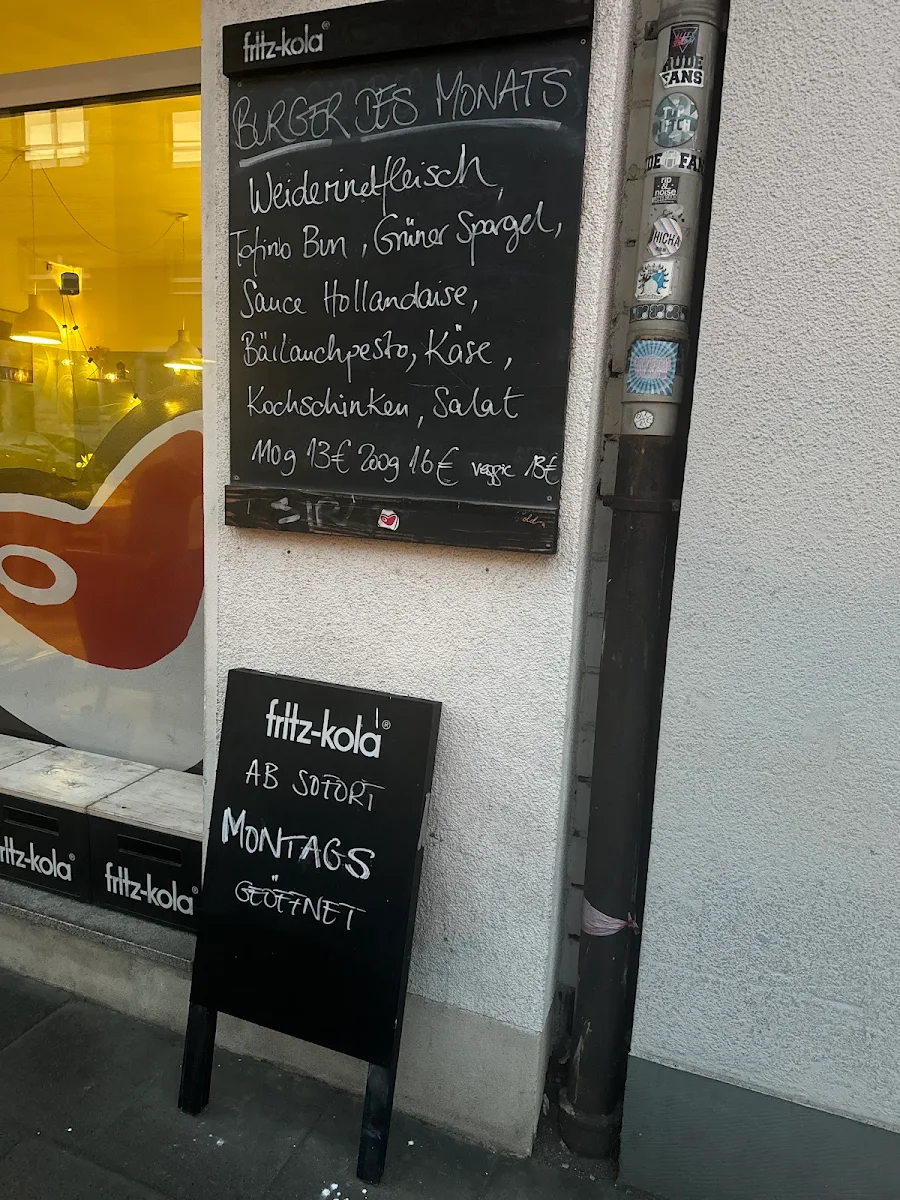 fritz-kola®
BURGER DES MONATS
Weiderindfleisch,
Tofino Bun, Grüner Spargel,
Sauce Hollandaise,
Bärlauchpesto, Käse,
Kochschinken, Salat
110g 13€ 200g 16€ veggie 13€
fritz-kola®
AB SOFORT
MONTAGS
GEÖFFNET
fritz-kola®
fritz-kola®
RUDE
FANS
rip
&
noise
CHICHA